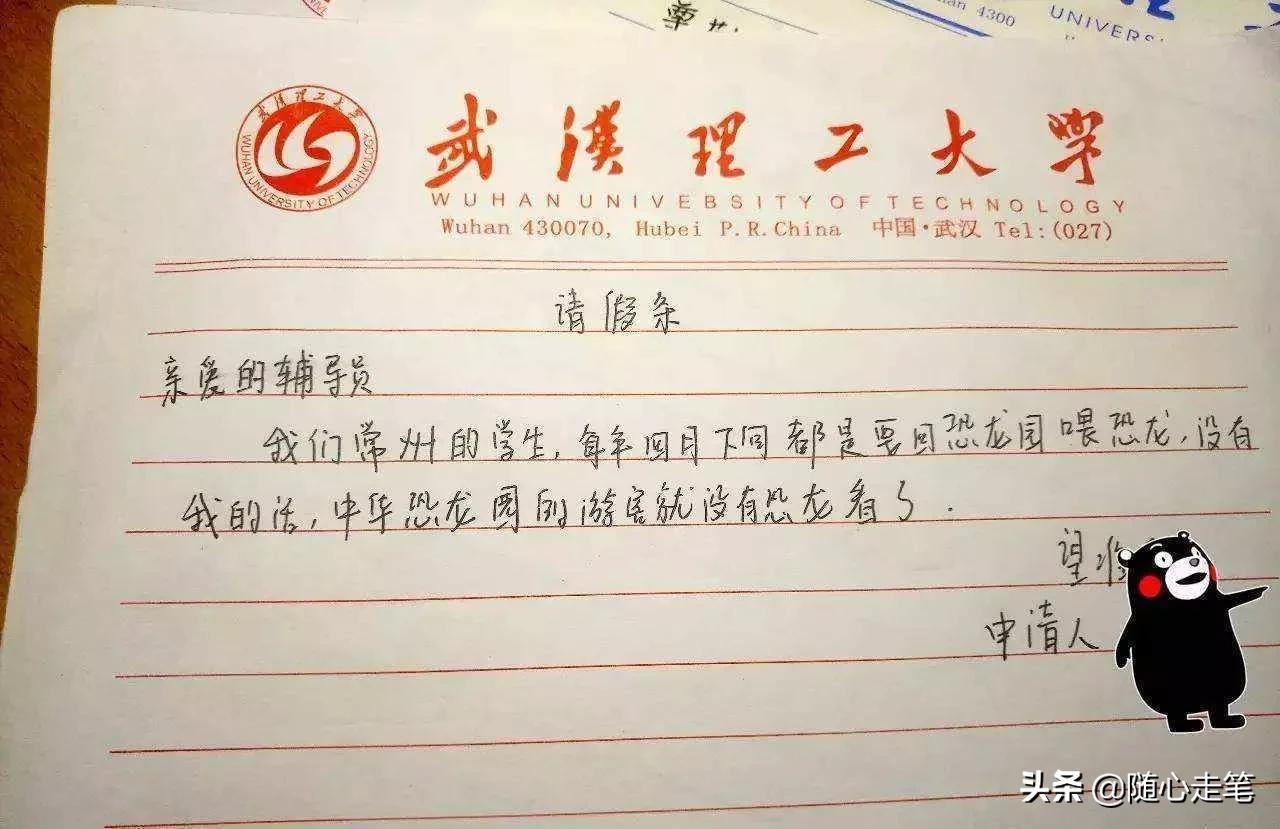 4300
UNIVERS
武漢理工大学
WUHAN UNIVERSITY OF TECHNOLOGY
武漢理工大學
WUHAN UNIVEBSITY OF TECHNOLOGY
Wuhan 430070, Hubei P.R.China 中国·武汉 Tel:(027)
请假条
亲爱的辅导员
我们常州的学生,每年四月下旬都是要回恐龙园喂恐龙,没有
我的话,中华恐龙园的游客就没有恐龙看了.
望准
申请人
头条 @随心走笔